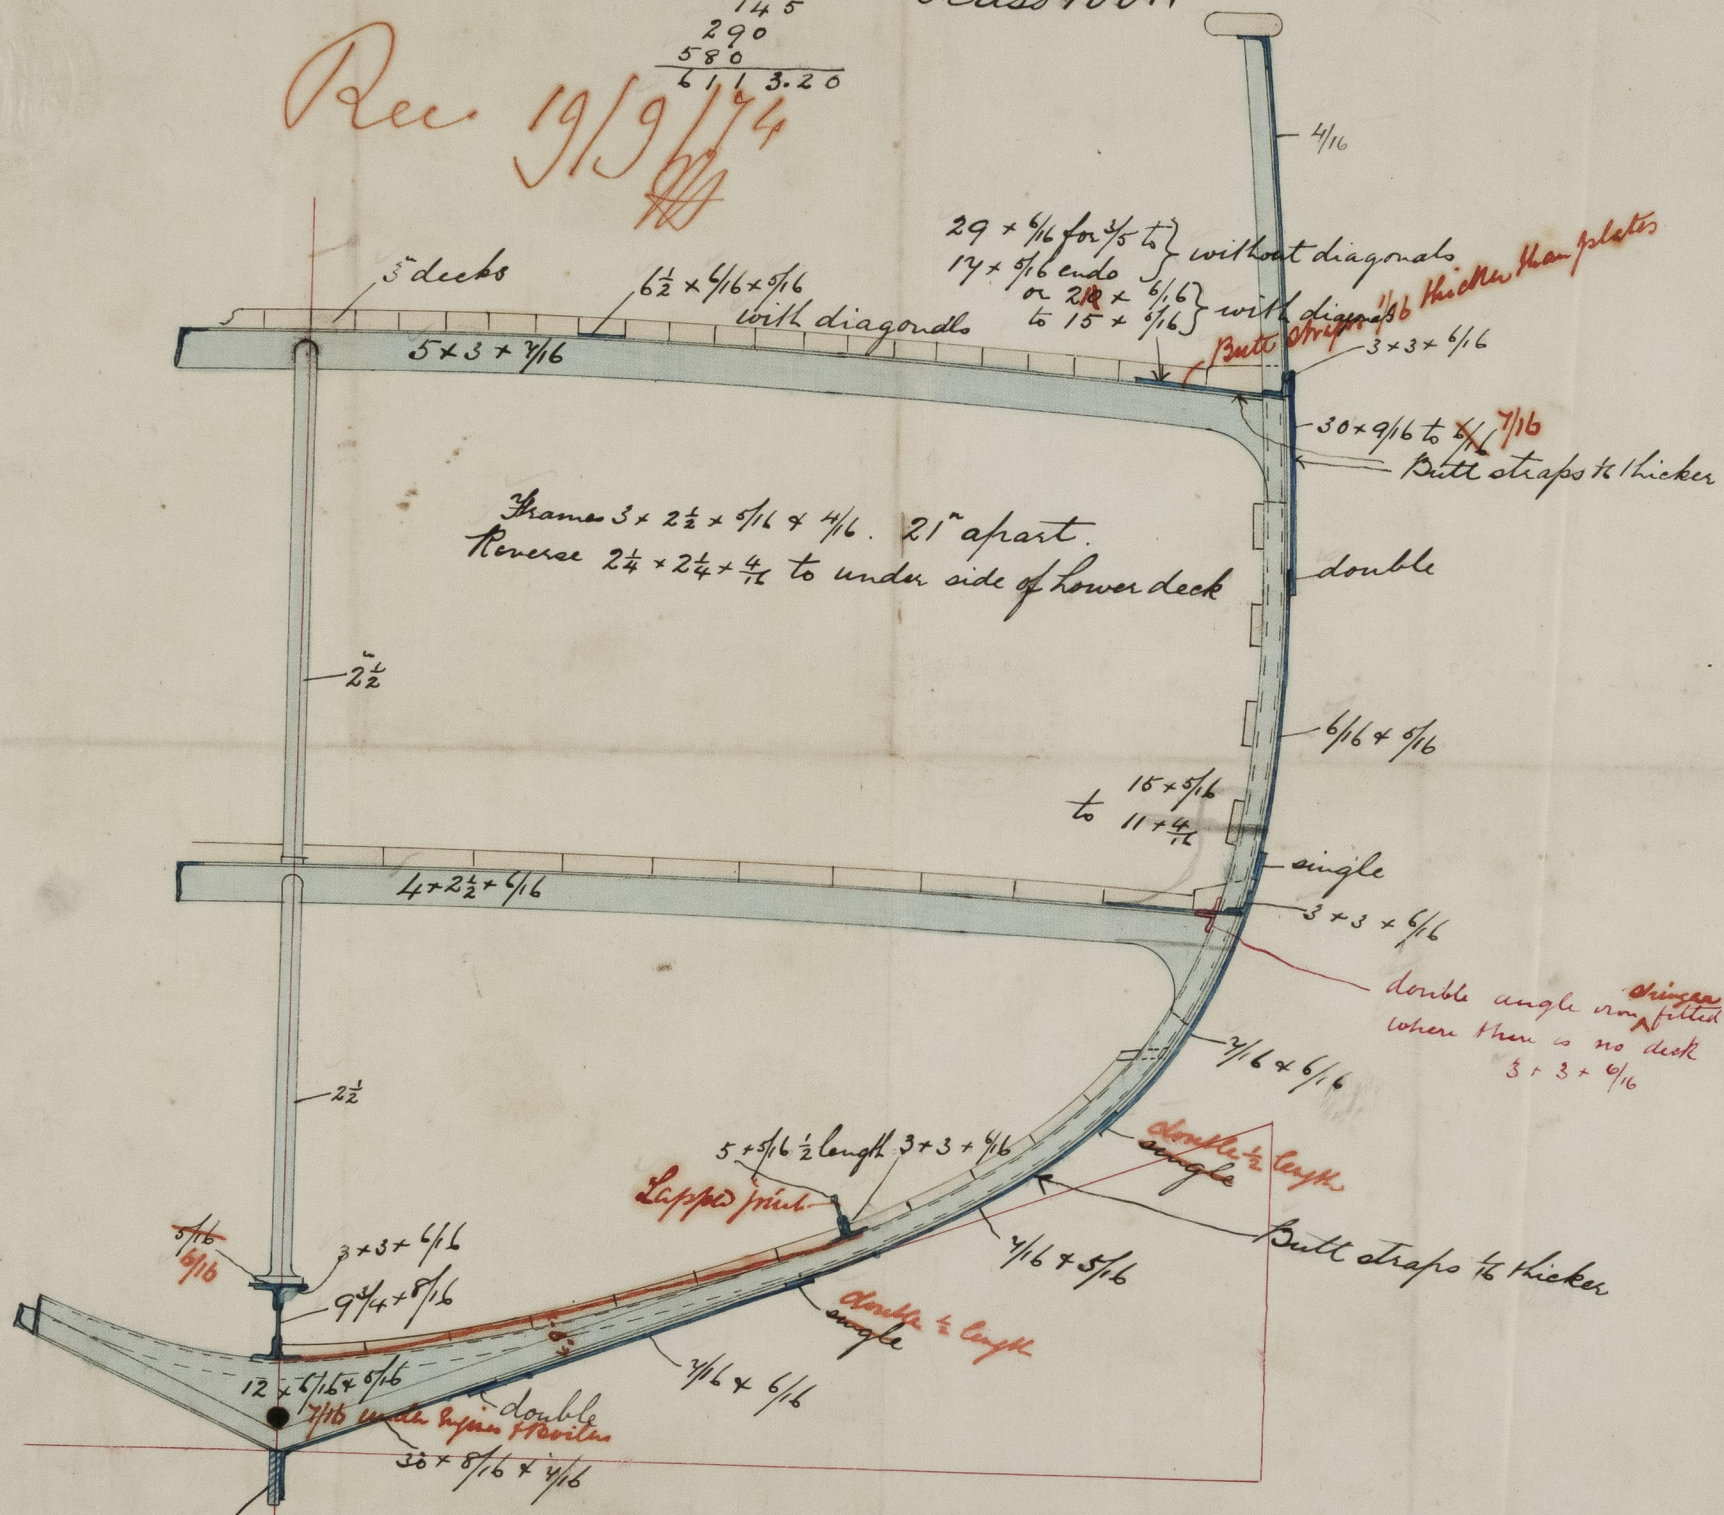 145
290
580
6113.20
Rec 19/9/74
4/16
29 × 6/16 for 3/5 to } without diagonals
17 × 5/16 ends
or 21 × 6/16 } with diagonals
to 15 × 6/16
Butt straps 1/16 thicker than plates
3 × 3 × 6/16
5 decks
6½ × 6/16 × 5/16
with diagonals
5 × 3 × 7/16
30 × 9/16 to 6/16 7/16
Butt straps 1/16 thicker
Frames 3 × 2½ × 5/16 & 4/16. 21" apart.
Reverse 2¼ × 2¼ × 4/16 to under side of Lower deck
double
2½"
6/16 & 5/16
15 × 5/16
to 11 × 4/16
single
4 × 2½ × 6/16
3 × 3 × 6/16
double angle iron stringer fitted
where there is no deck
3 × 3 × 6/16
7/16 & 6/16
2½
double ½ length
single
5 × 5/16 ½ length 3 × 3 × 6/16
Lapped joint
Butt straps 1/16 thicker
7/16 & 5/16
5/16
6/16
3 × 3 × 6/16
9¾ × 8/16
double ½ length
single
7/16 & 6/16
12 × 6/16 & 5/16
7/16 under Engines & Boilers
double
30 × 8/16 & 7/16